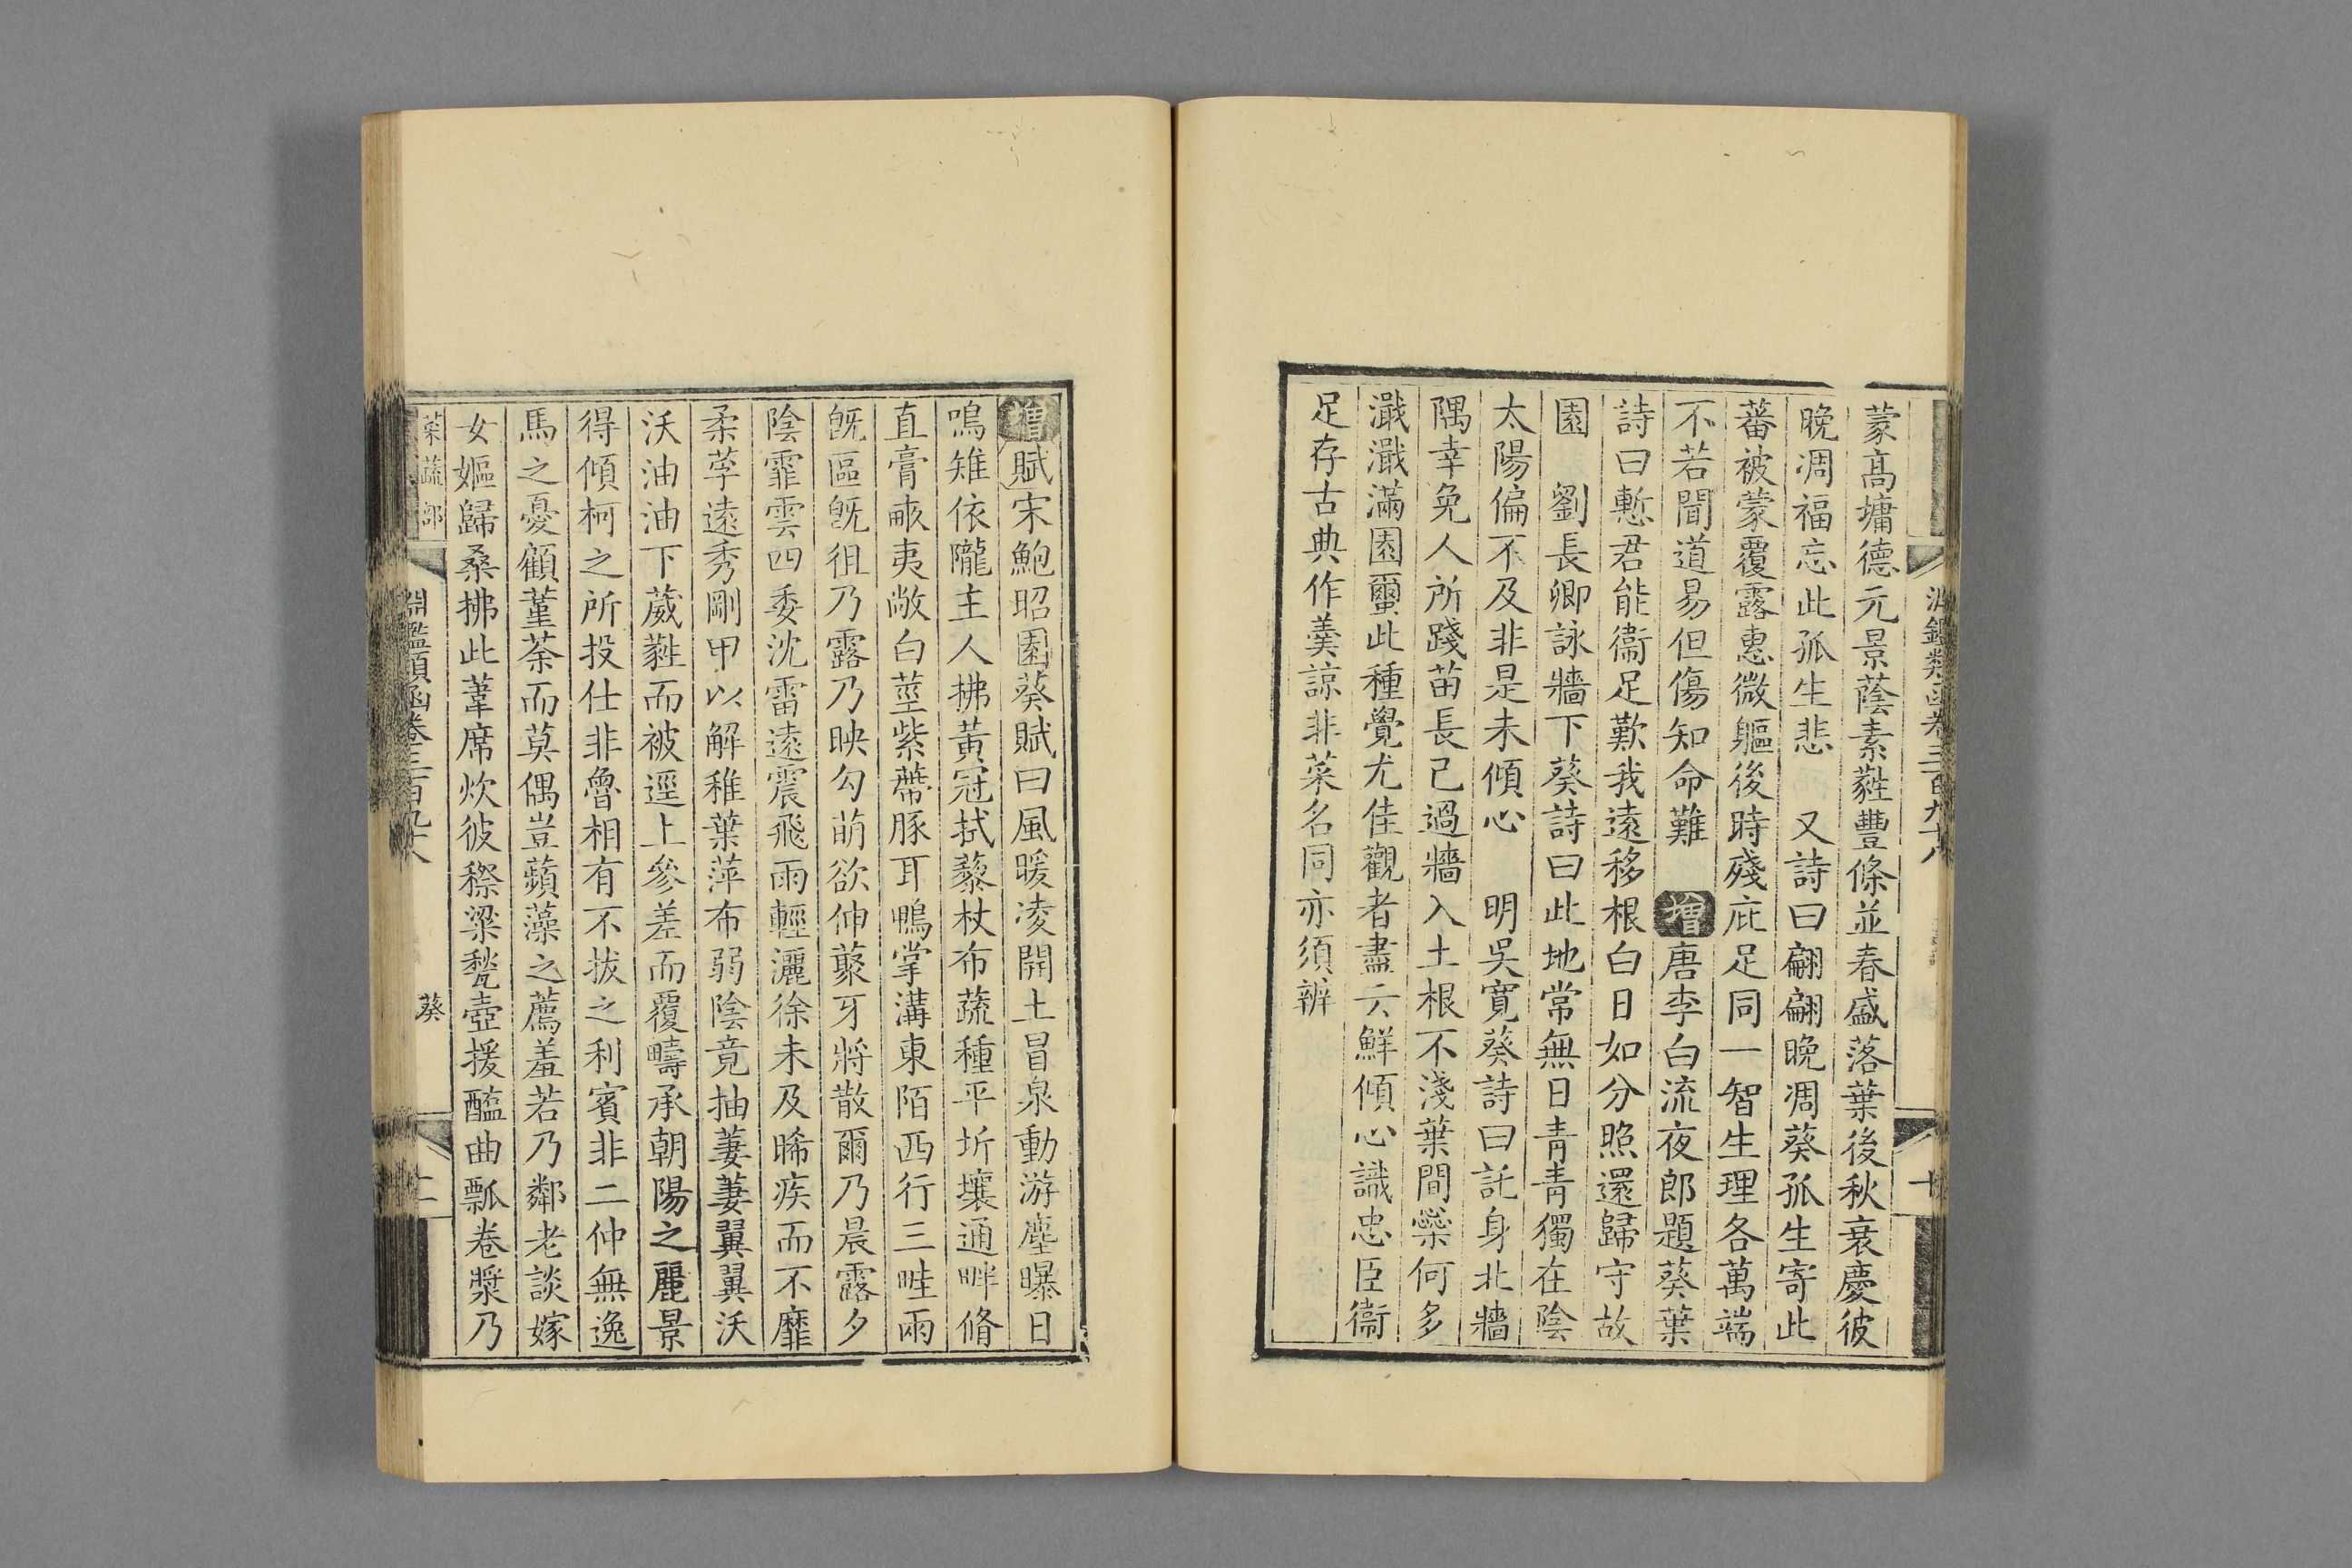 淵鑑類函卷三百九十八
十
蒙髙墉德元景蔭素蕤豐條並春盛落葉後秋衰慶彼
晚凋福忘此孤生悲　又詩曰翩翩晚凋葵孤生寄此
蕃被蒙覆露惠微軀後時殘庇足同一智生理各萬端
不若聞道易但傷知命難　增唐李白流夜郎題葵葉
詩曰慙君能衞足歎我遠移根白日如分照還歸守故
園　劉長卿詠牆下葵詩曰此地常無日青青獨在陰
太陽偏不及非是未傾心　明吳寬葵詩曰託身北牆
隅幸免人所踐苗長已過牆入土根不淺葉間蘂何多
濈濈滿園璽此種覺尤佳觀者盡云鮮傾心識忠臣衞
足存古典作羹諒非菜名同亦須辨
增賦宋鮑昭園葵賦曰風暖凌開土冒泉動游塵曝日
鳴雉依隴主人拂黃冠拭藜杖布蔬種平圻壤通畔脩
直膏畝夷敞白莖紫蔕豚耳鴨掌溝東陌西行三畦兩
旣區旣徂乃露乃映勾萌欲伸藂牙將散爾乃晨露夕
陰霏雲四委沈雷遠震飛雨輕灑徐未及晞疾而不靡
柔莩遠秀剛甲以解稚葉萍布弱陰竟抽萋萋翼翼沃
沃油油下葳蕤而被逕上參差而覆疇承朝陽之麗景
得傾柯之所投仕非魯相有不拔之利賓非二仲無逸
馬之憂顧堇荼而莫偶豈蘋藻之薦羞若乃鄰老談嫁
女嫗歸桑拂此葦席炊彼穄粱甃壺援醢曲瓢卷漿乃
菜蔬部
淵鑑類函卷三百九十八
葵